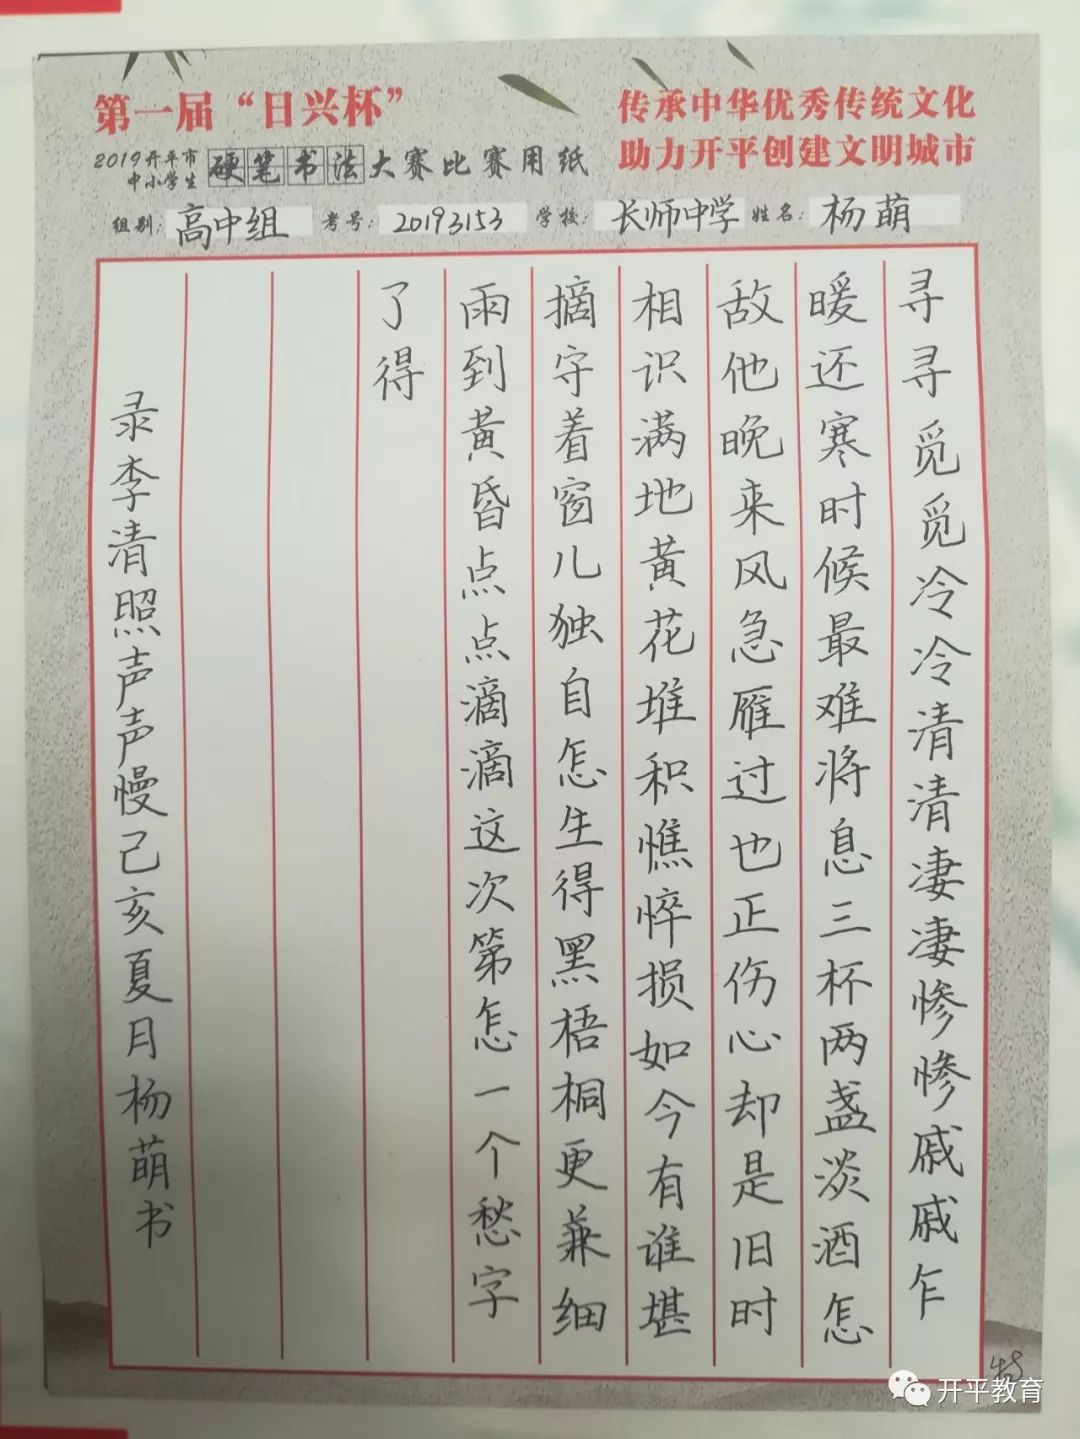 第一届“日兴杯”
传承中华优秀传统文化
助力开平创建文明城市
2019开平市
中小学生
硬笔书法大赛比赛用纸
组别：高中组 考号：20193153 学校：长师中学 姓名：杨萌
寻寻觅觅冷冷清清凄凄惨惨戚戚乍
暖还寒时候最难将息三杯两盏淡酒怎
敌他晚来风急雁过也正伤心却是旧时
相识满地黄花堆积憔悴损如今有谁堪
摘守着窗儿独自怎生得黑梧桐更兼细
雨到黄昏点点滴滴这次第怎一个愁字
了得
录李清照声声慢己亥夏月杨萌书
开平教育